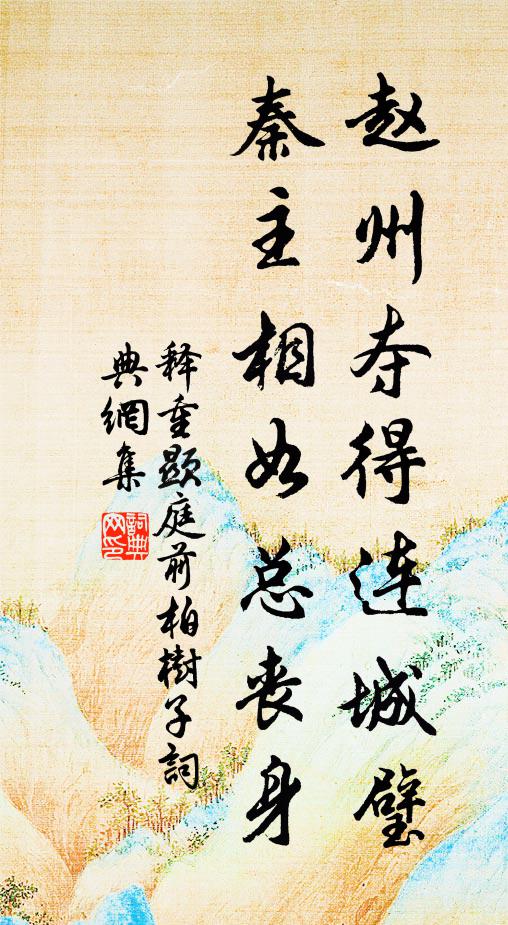 赵州夺得连城璧
秦主相如总丧身
释重显庭前柏樹子詞
典網集
詞典
网印